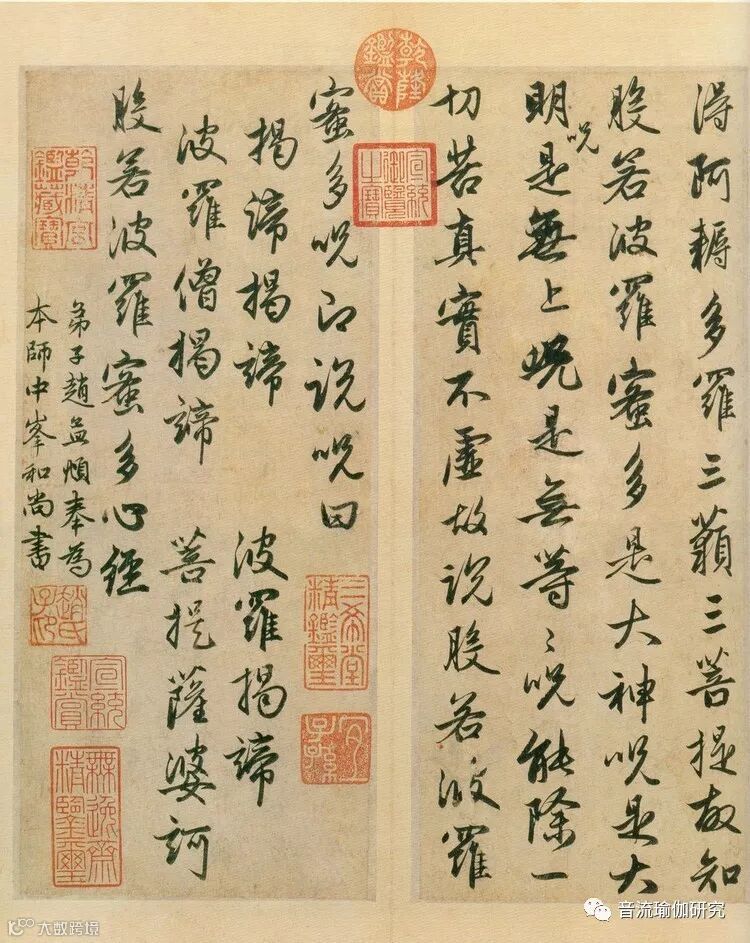 得阿耨多羅三藐三菩提故知
般若波羅蜜多是大神呪是大
明呪是無上呪是無等〻呪能除一
切苦真實不虛故說般若波羅
蜜多呪即說呪曰
揭諦揭諦 波羅揭諦
波羅僧揭諦 菩提薩婆訶
般若波羅蜜多心經
弟子趙孟頫奉為
本師中峯和尚書
乾隆鑑賞
宣統御覽之寶
三希堂精鑑璽
宜子孫
乾清宮鑑藏寶
趙氏子昂
宣統鑑賞
無逸齋精鑑璽
大数跨境
音流瑜伽研究